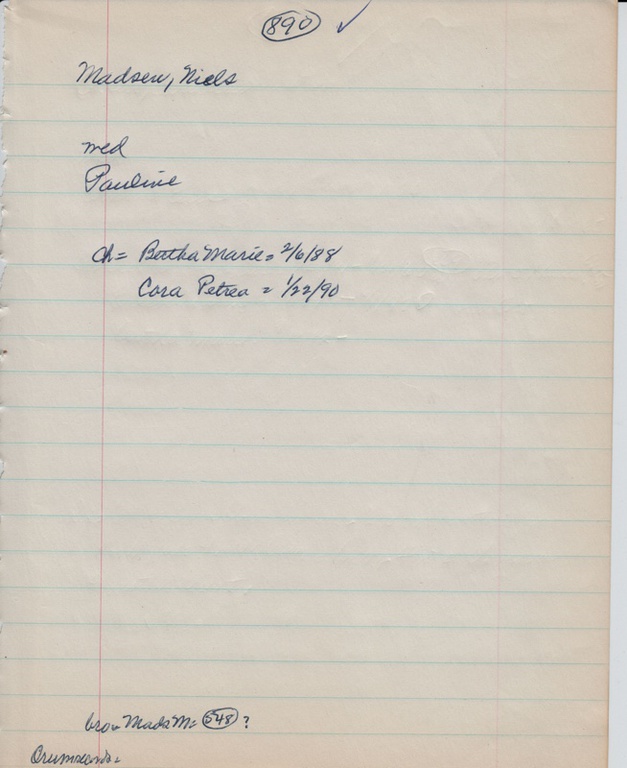 890 ✓
Madsen, Niels
med
Pauline
ch= Bertha Marie = 2/6/88
Cora Petrea = 1/22/90
bro= Mads M= 548 ?